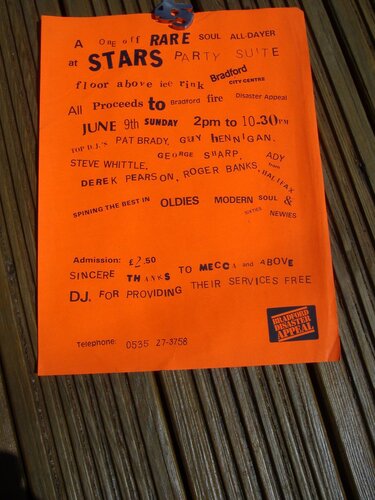 A one off RARE SOUL ALL-DAYER
at STARS PARTY SUITE
floor above ice rink Bradford CITY CENTRE
All Proceeds to Bradford fire Disaster Appeal
JUNE 9th SUNDAY 2pm to 10-30PM
TOP D.J.'s PAT BRADY, GUY hENNIGAN,
STEVE WHITTLE, GEORGE SHARP, ADY from HALIFAX
DEREK PEARSON, ROGER BANKS,
SPINING THE BEST IN OLDIES MODERN SOUL &
SIXTIES NEWIES
Admission: £2.50
SINCERE THANKS TO MECCA and ABOVE
D.J. FOR PROVIDING THEIR SERVICES FREE
BRADFORD
DISASTER
APPEAL
Telephone: 0535 27-3758